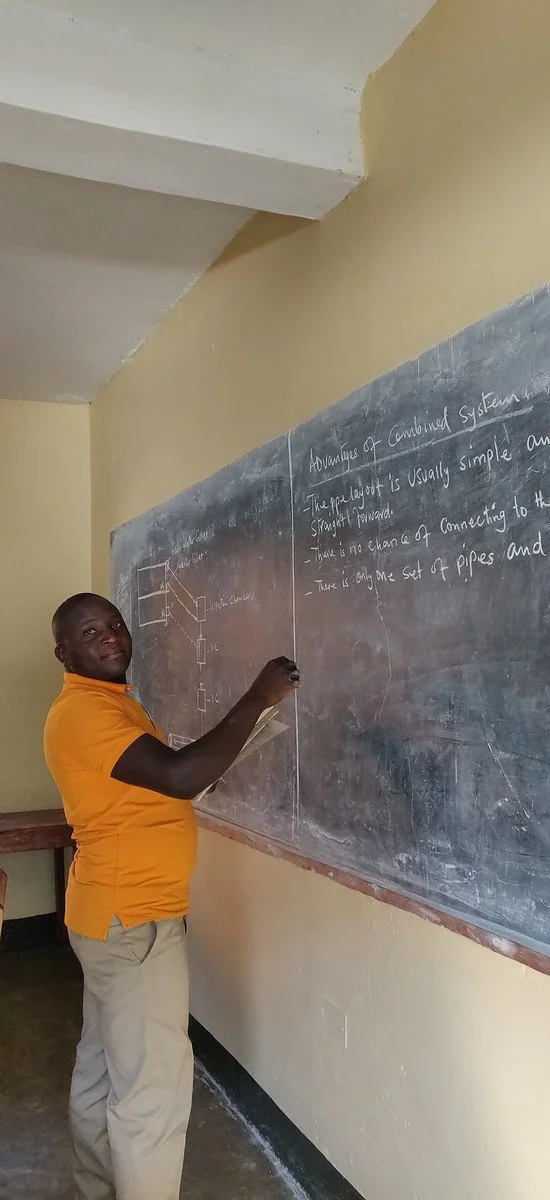 Advantages of Combined System
- The pipe layout is usually simple an
straight forward.
- There is no chance of connecting to th
- There is only one set of pipies and
Chamber